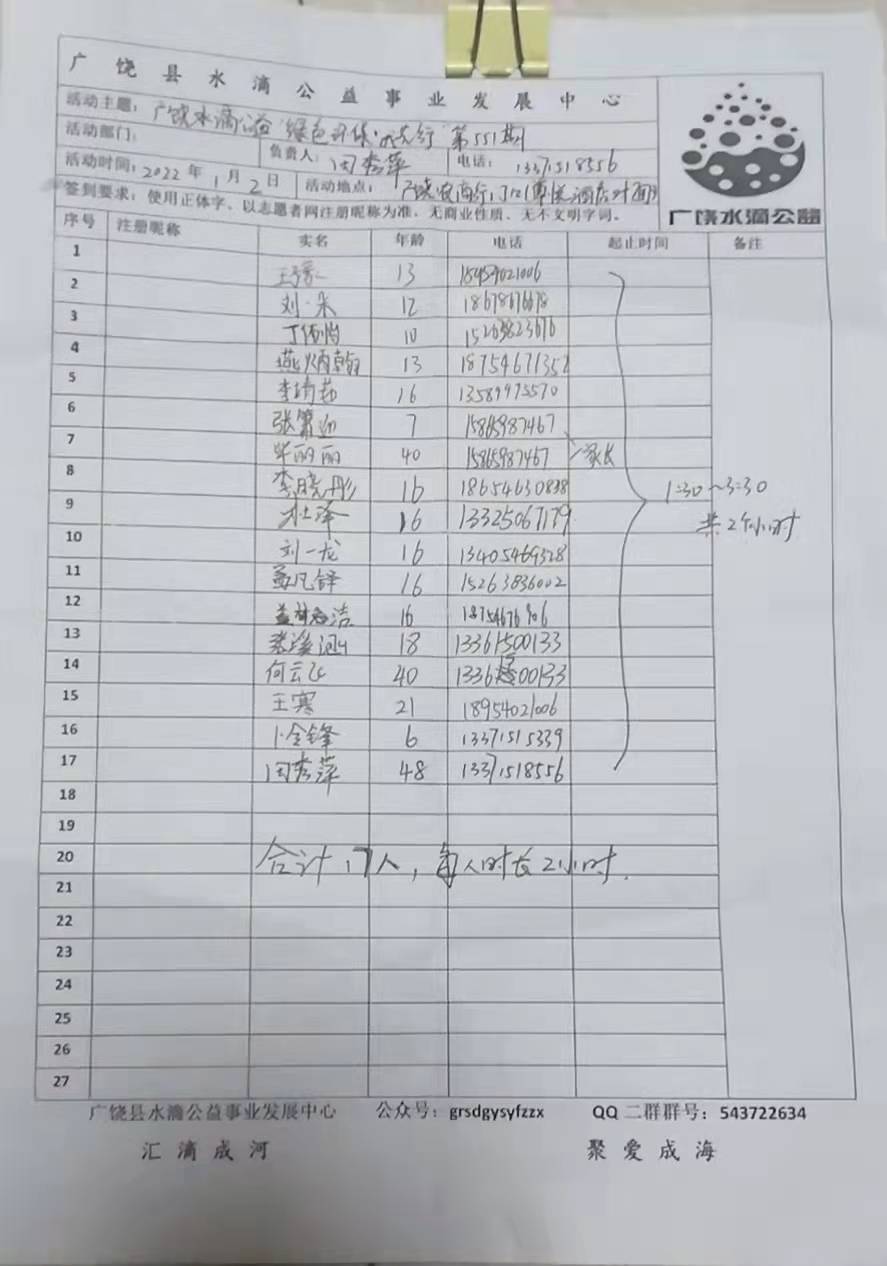 广饶县水滴公益事业发展中心
活动主题：广饶水滴公益 绿色环保 行 第551期
活动部门： 负责人： 闫秀萍 电话： 13371518556
活动时间：2022年1月2日 活动地点： 广饶农商行门口(对面)
签到要求：使用正体字、以志愿者网注册昵称为准，无商业性质、无不文明字词。
广饶水滴公益
序号 注册昵称 实名 年龄 电话 起止时间 备注
1 13
2 刘 12 18678676678
3 丁 10 15263823676
4 燕炳翰 13 18754671352
5 李 16 13589975570
6 张 7 15865987467
7 毕丽丽 40 15865987467 家长
8 李晓彤 16 18654630838
9 杜泽 16 13325067179
1:30~3:30
共2个小时
10 刘一龙 16 13405469328
11 孟凡铎 16 15263836002
12 洁 16
13 18 13361500133
14 何云飞 40
15 王寒 21 18954021006
16 卜令锋 6 13371515339
17 闫秀萍 48 13371518556
18
19
20 合计17人，每人时长2小时.
21
22
23
24
25
26
27
广饶县水滴公益事业发展中心 公众号：grsdgysyfzzx QQ 二群群号：543722634
汇滴成河 聚爱成海